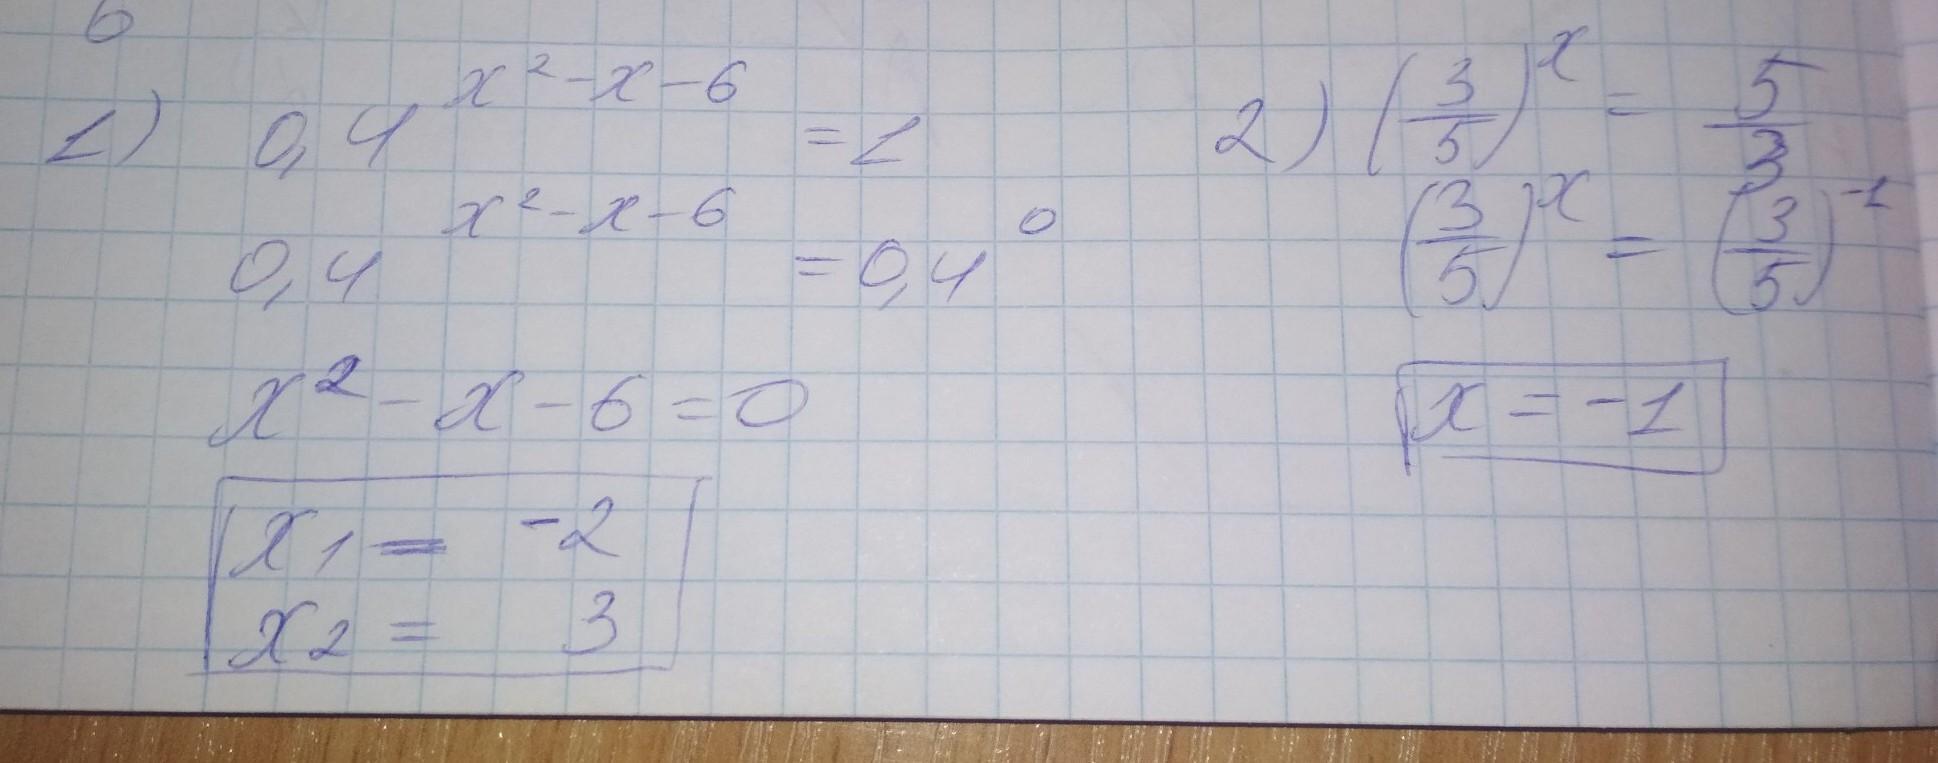 6
1) 0,4^{x² - x - 6} = 1
0,4^{x² - x - 6} = 0,4^0
x² - x - 6 = 0
x₁ = -2
x₂ = 3
2) (3/5)^x = 5/3
(3/5)^x = (3/5)^{-1}
x = -1